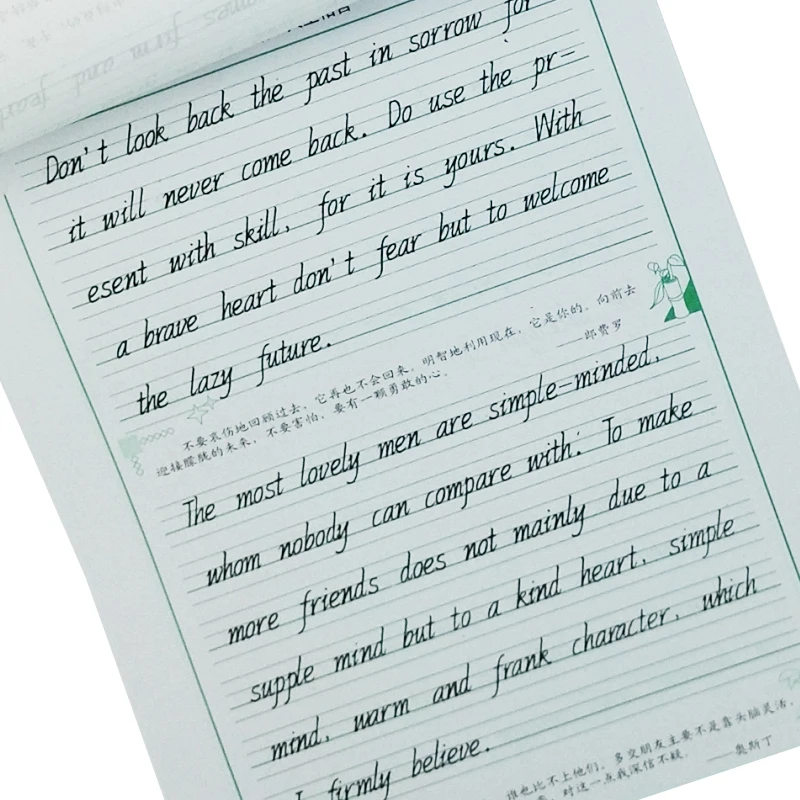 Don't look back the past in sorrow for
it will never come back. Do use the pr-
esent with skill, for it is yours. With
a brave heart don't fear but to welcome
the lazy future.
不要哀伤地回顾过去，它再也不会回来，明智地利用现在，它是你的。向前去
迎接朦胧的未来，不要害怕，要有一颗勇敢的心。
——郎费罗
The most lovely men are simple-minded,
whom nobody can compare with: To make
more friends does not mainly due to a
supple mind but to a kind heart, simple
mind, warm and frank character, which
I firmly believe.
谁也比不上他们。多交朋友主要不是靠头脑灵活，
对这一点我深信不疑。
——奥斯丁